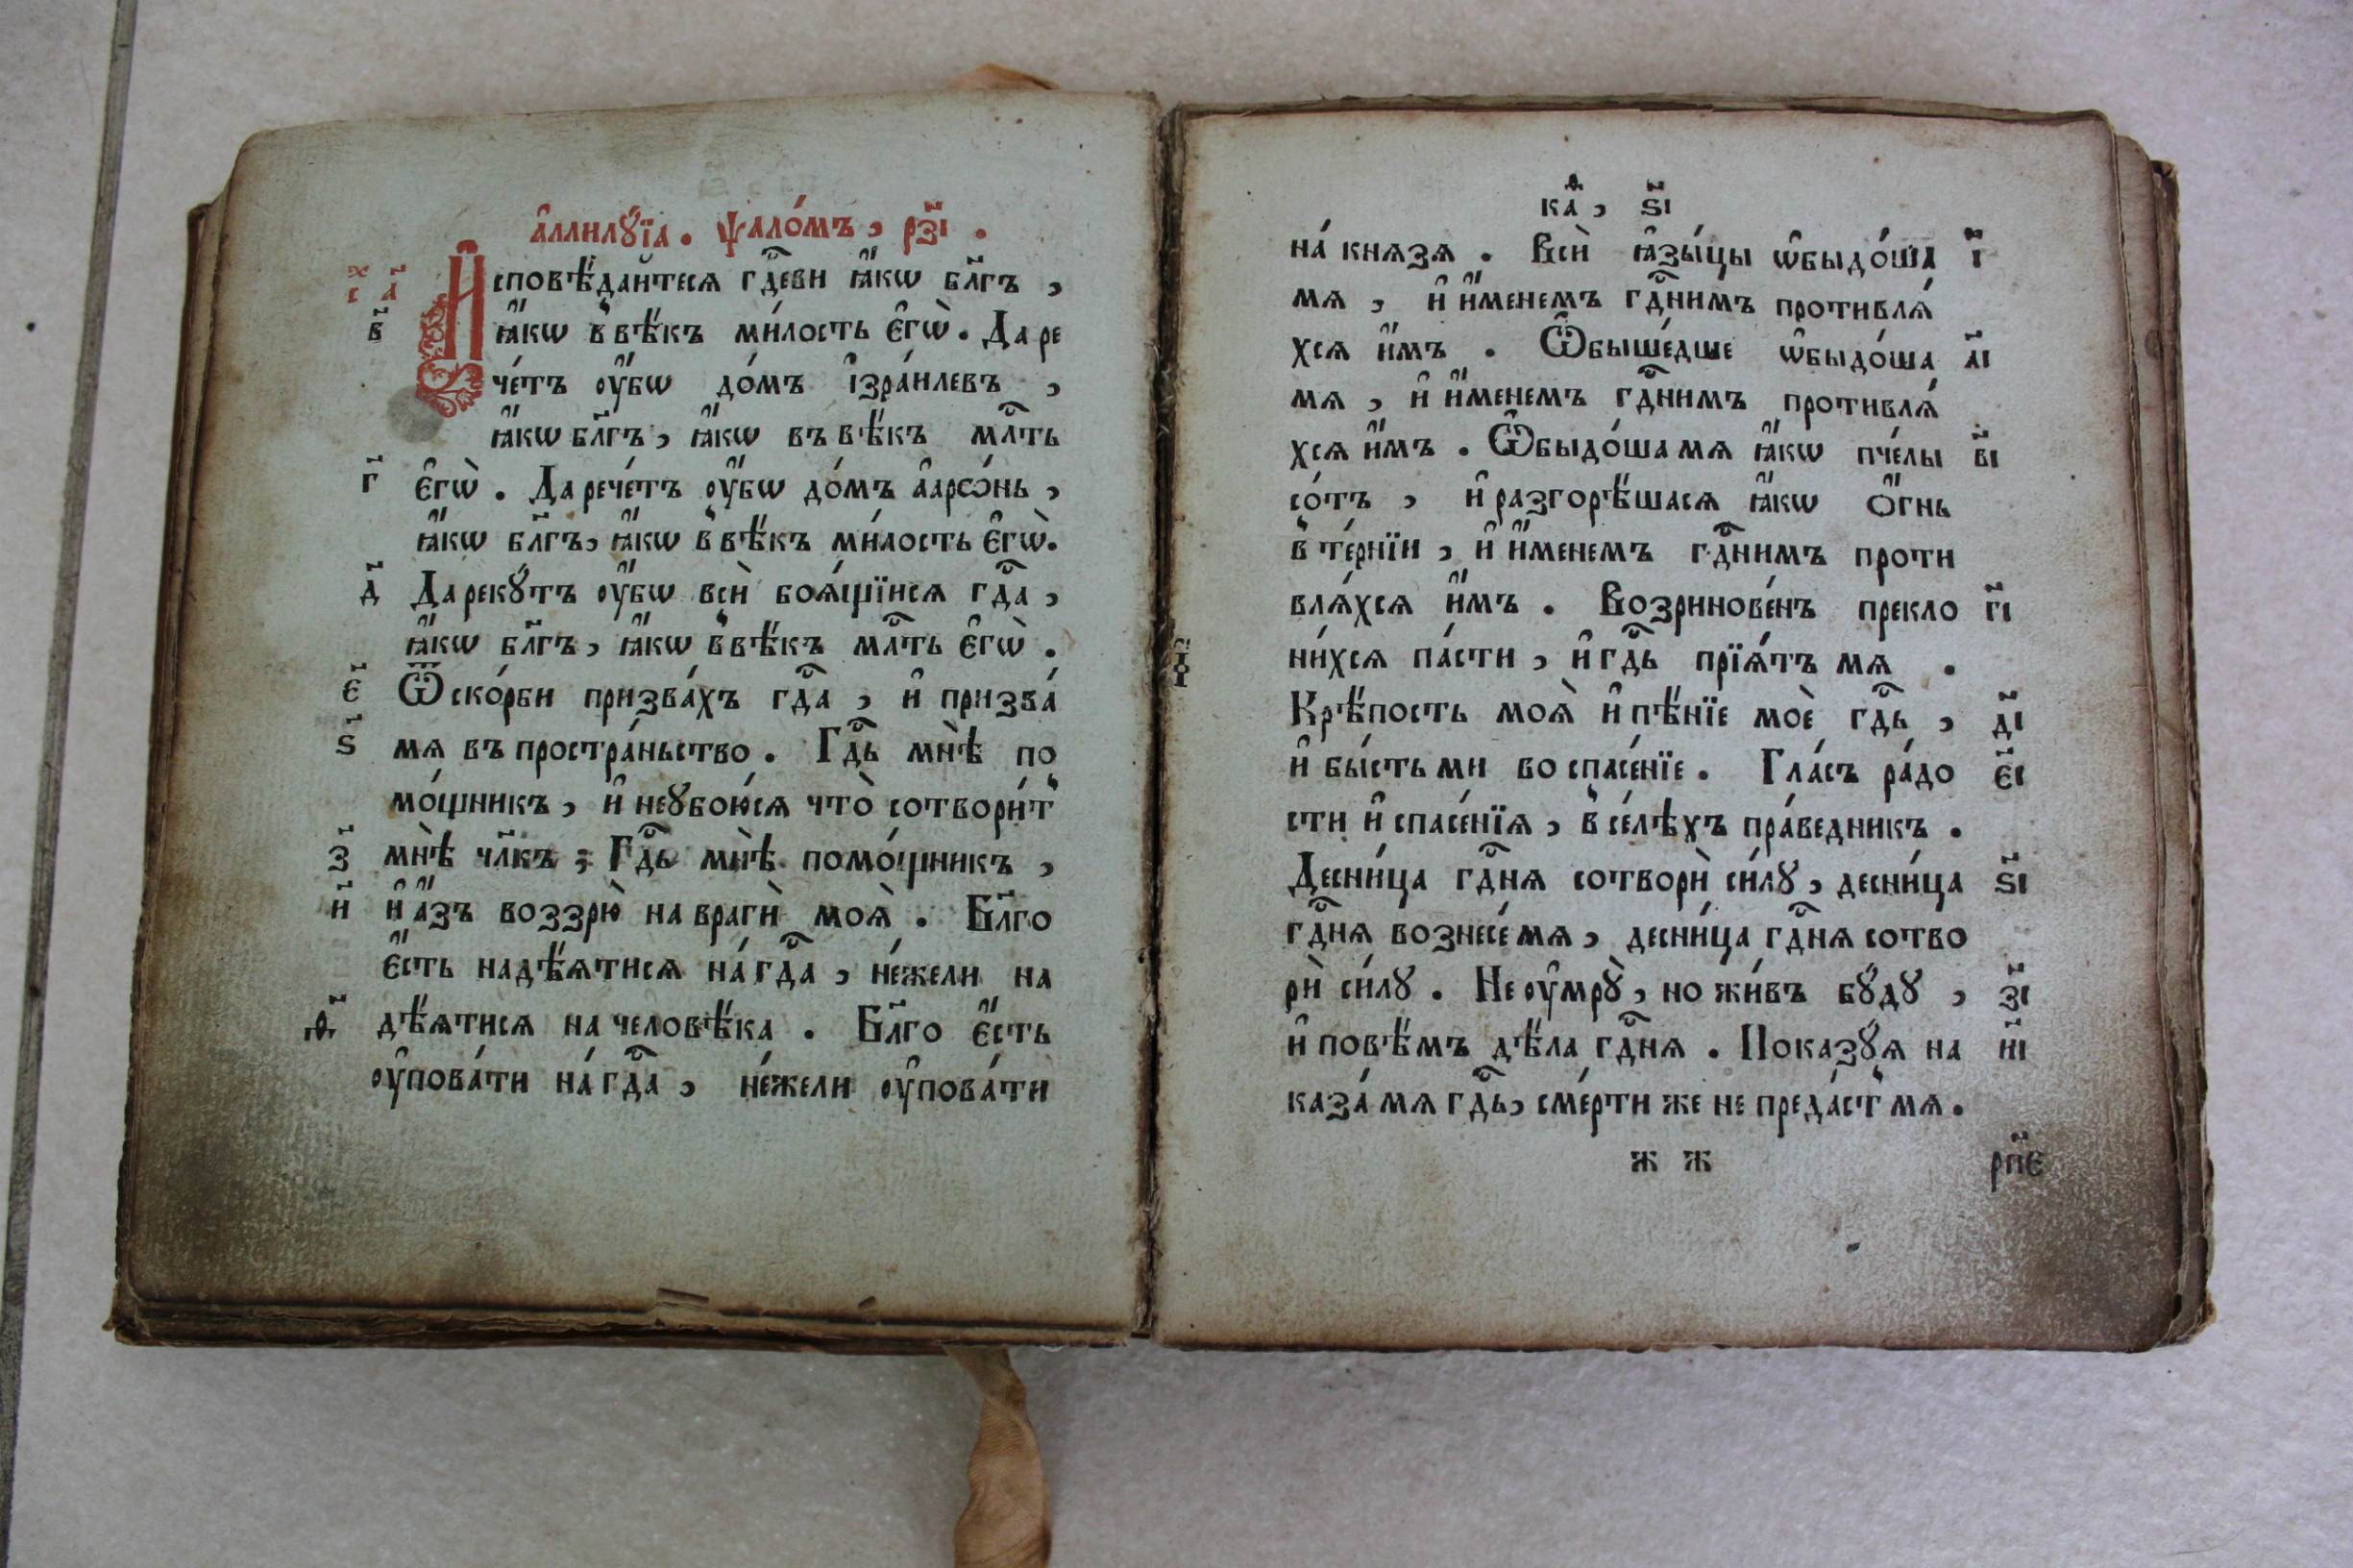 а҆ллилꙋ́їа . ѱало́мъ , рз҃і .
х҃ с а҃ И҆сповѣ́дайтеся гдⷭ҇еви ꙗ҆́кѡ бл҃гъ ,
в҃ ꙗ҆́кѡ в̾вѣ́къ ми́лость є҆гѡ̀ . Да ре
че́тъ ᲂу҆́бѡ до́мъ і҆зра́илевъ ,
ꙗ҆́кѡ бл҃гъ , ꙗ҆́кѡ въ вѣ́къ млⷭ҇ть
г҃ є҆гѡ̀ . Да рече́тъ ᲂу҆́бѡ до́мъ а҆арѡ́нь ,
ꙗ҆́кѡ бл҃гъ , ꙗ҆́кѡ в̾вѣ́къ ми́лость є҆гѡ̀ .
д҃ Да рекꙋ́тъ ᲂу҆́бѡ всѝ боя́щїися гдⷭ҇а ,
ꙗ҆́кѡ бл҃гъ , ꙗ҆́кѡ в̾вѣ́къ млⷭ҇ть є҆гѡ̀ .
є҃ Ѿ ско́рби призва́хъ гдⷭ҇а , и҆ призва́
ѕ҃ мя въ простра́ньство . Гдⷭ҇ь мнѣ̀ по
мо́щникъ , и҆ не ꙋбою́ся что̀ сотвори́т̾
з҃ мнѣ̀ чл҃къ ; Гдⷭ҇ь мнѣ̀ помо́щникъ ,
и҃ и҆ а҆́зъ воззрю̀ на врагѝ моя̀ . Бл҃го
є҆́сть надѣ́ятися на́ гдⷭ҇а , не́жели на
ѳ҃ дѣ́ятися на человѣ́ка . Бл҃го є҆́сть
ᲂу҆пова́ти на́ гдⷭ҇а , не́жели ᲂу҆пова́ти
каѳ҇ , ѕ҃і
на́ князя . Всѝ ꙗ҆зы́цы ѡ҆быдо́ша і҃
мя , и҆ и҆́менемъ гдⷭ҇нимъ противля́
хся и҆́мъ . Ѡ҆быше́дше ѡ҆быдо́ша а҃і
мя , и҆ и҆́менемъ гдⷭ҇нимъ противля́
хся и҆́мъ . Ѡ҆быдо́ша мя ꙗ҆́кѡ пче́лы в҃і
со́тъ , и҆ разгорѣ́шася ꙗ҆́кѡ ѻ҆́гнь
в̾ те́рнїи , и҆ и҆́менемъ гдⷭ҇нимъ проти
вля́хся и҆́мъ . Возринове́нъ прекло г҃і
ни́хся па́сти , и҆ гдⷭ҇ь прїя́тъ мя .
Крѣ́пость моя̀ и҆ пѣ́нїе моѐ гдⷭ҇ь , д҃і
и҆ бы́сть ми во спасе́нїе . Гла́съ ра́до є҃і
сти и҆ спасе́нїя , в̾ се́лѣхъ пра́ведникъ .
Десни́ца гдⷭ҇ня сотворѝ си́лꙋ , десни́ца ѕ҃і
гдⷭ҇ня вознесе́ мя , десни́ца гдⷭ҇ня сотво
рѝ си́лꙋ . Не ᲂу҆мрꙋ̀ , но жи́въ бꙋ́дꙋ , з҃і
и҆ повѣ́мъ дѣ́ла гдⷭ҇ня . Показꙋ́я на и҃і
каза́ мя гдⷭ҇ь , сме́рти же не преда́ст̾ мя .
ж ж рп҃є